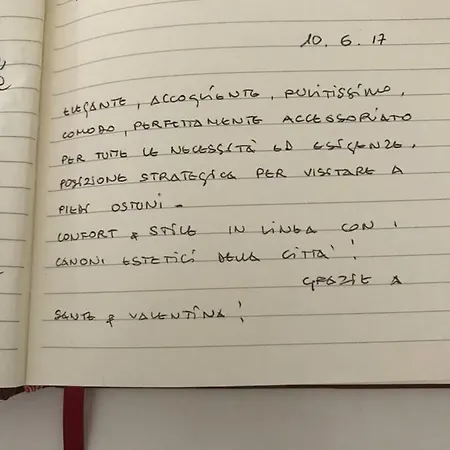 10. 6. 17
ELEGANTE, ACCOGLIENTE, PULITISSIMO,
COMODO, PERFETTAMENTE ACCESSORIATO
PER TUTTE LE NECESSITÀ ED ESIGENZE.
POSIZIONE STRATEGICA PER VISITARE A
PIEDI OSTUNI.
CONFORT & STILE IN LINEA CON I
CANONI ESTETICI DELLA CITTÀ!
GRAZIE A
& VALENTINA!